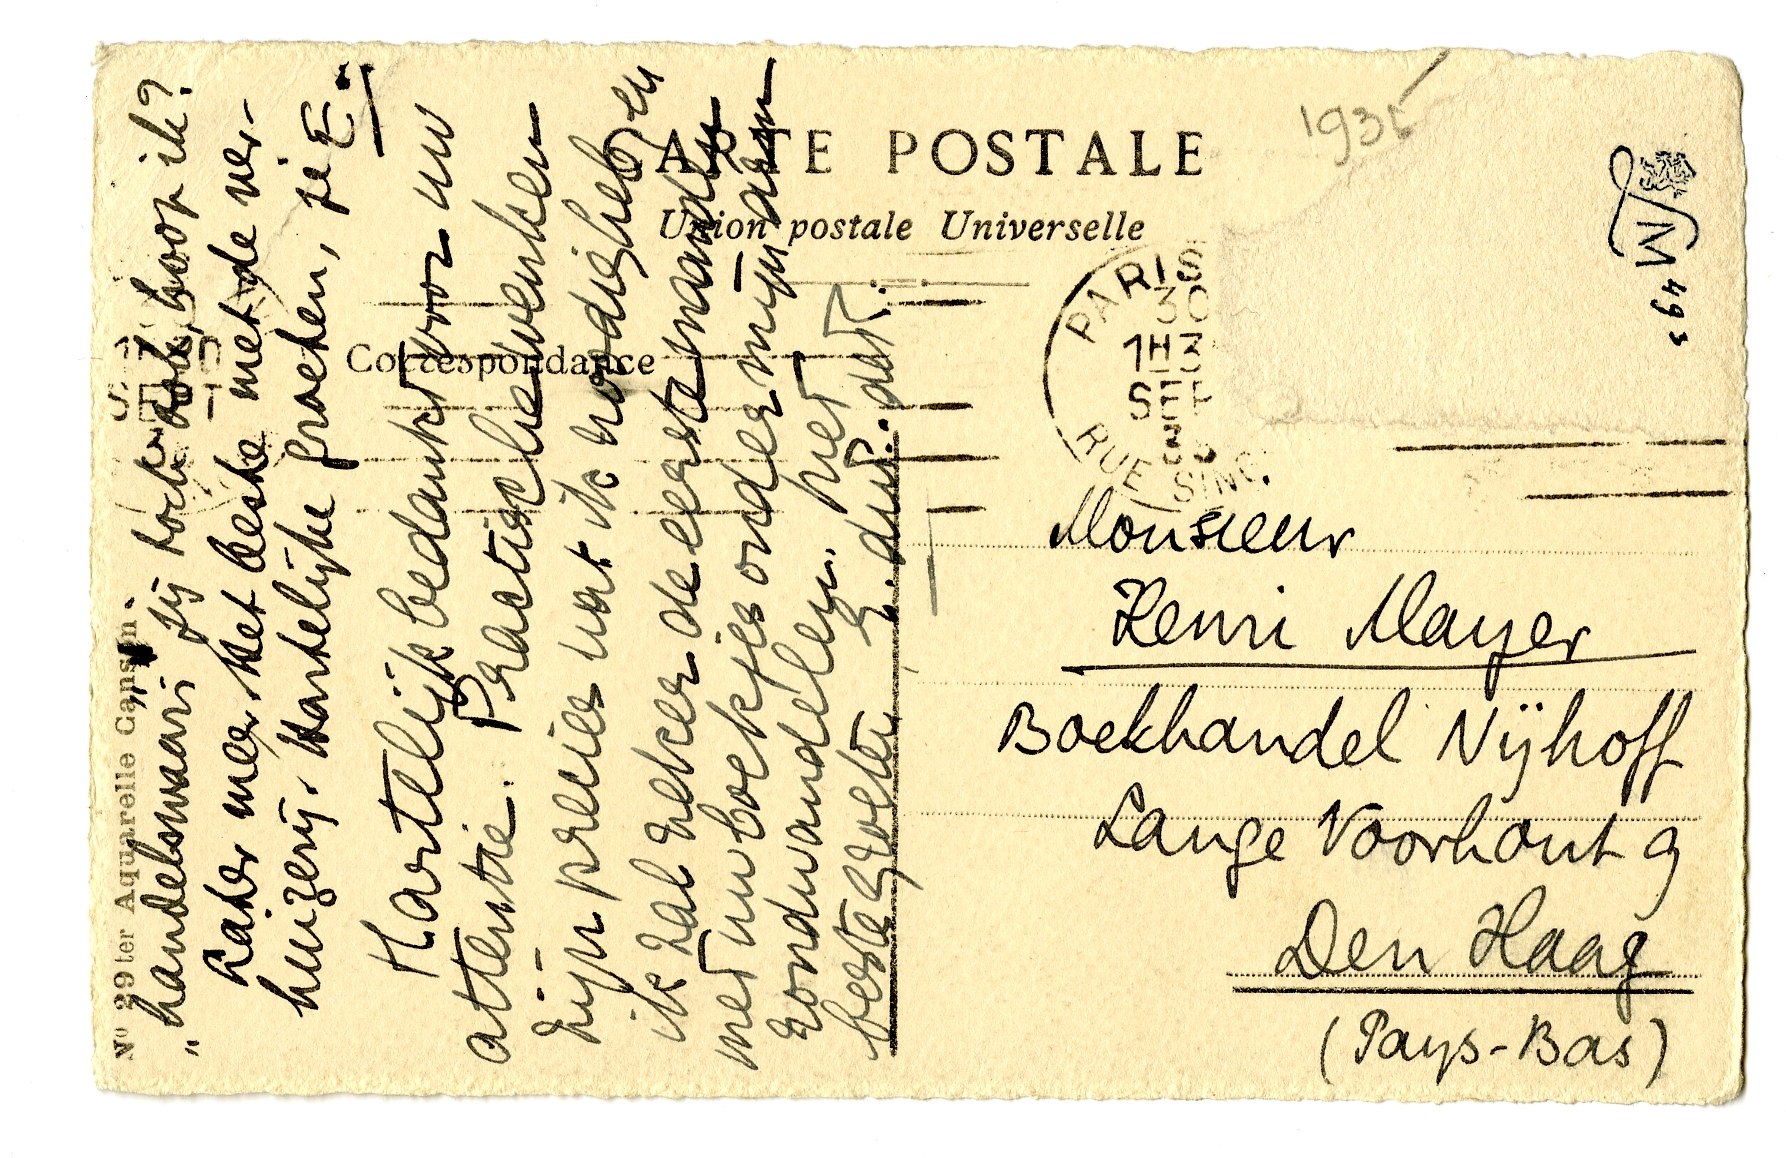 CARTE POSTALE
Union postale Universelle
Correspondance
Nº 29 ter Aquarelle Cans n.
1935
M
493
PARIS
30
1H3
SEP
35
RUE SING
Monsieur
Henri Mayer
Boekhandel Nijhoff
Lange Voorhout 9
Den Haag
(Pays-Bas)
"handelswaar" jij toch ook, hoop ik?
Later meer. Het beste met de ver-
huizerij. Hartelijke groeten, je E.
Hartelijk bedankt voor uw
attentie. Practische wenken
zijn precies wat ik noodig heb en
ik zal zeker de eerste maanden
met uw boekjes onder mijn arm
rondwandelen. Met
beste groeten